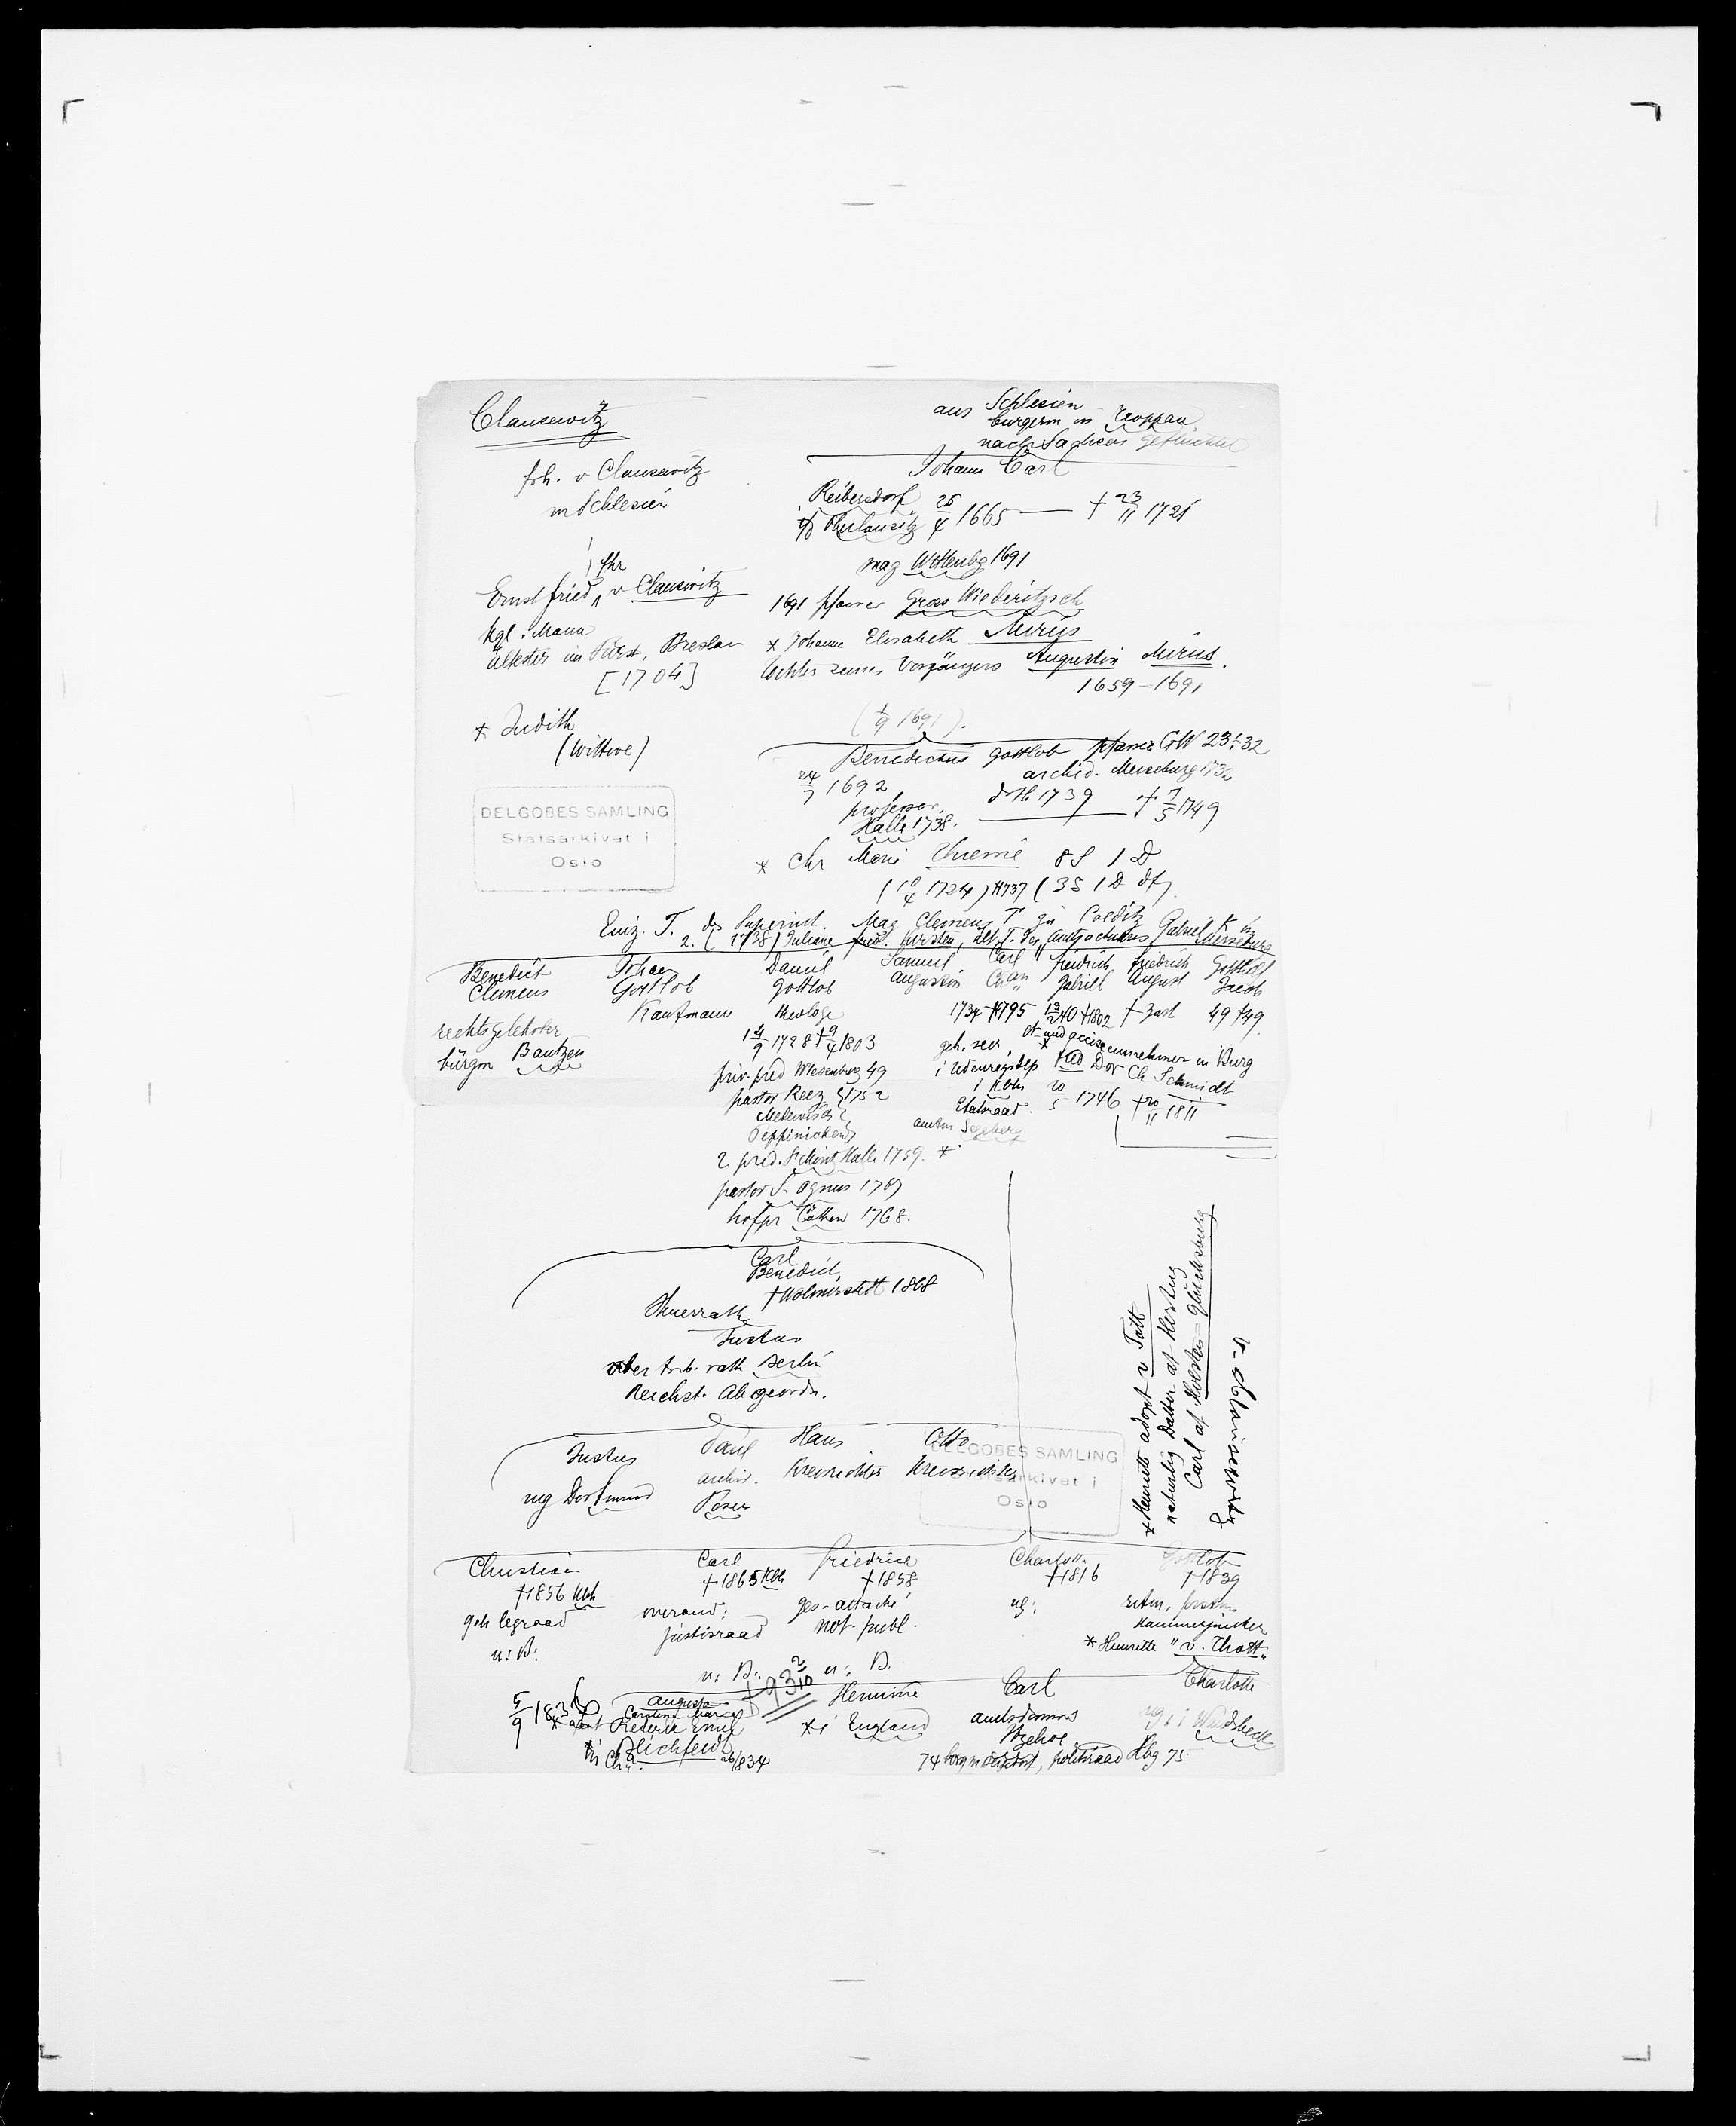 Clausewitz
aus Schlesien
burgerm in Troppau
nach Sachsen geflüchtet
frh. v Clausewitz
in Schlesien
Johann Carl
Reibersdorf
Oberlausitz 25/4 1665 — † 23/11 1721
mag Wittenbg 1691
frhr
Ernst Fried v Clausewitz
1691 Pfarrer Gross Wiederitzsch
kgl. Mann
* Johanne Elisabeth Mirus
ältester im Fürst. Breslau
[1704]
tochter seines Vorgängers Augustin Mirus.
1659–1691
(1/9 1691).
* Judith
(Wittwe)
Benedictus Gottlob pfarrer GW 23-32
archid. Merseburg 1732
24/7 1692
professor
Halle 1738.
drth 1739 † 7/5 1749
DELGOBES SAMLING
Statsarkivet i
Oslo
* Chr Marie Thieme 8 S 1 D
(10/4 1724) †1737 (3 S 1 D df)
Einz. T. des Superint. Mag Clemens T zu Colditz
2. (1738) Juliane Fried. Kersten, ält. T. des Amtsactuars Gabriel K in Merseburg
Benedict Clemens
Johan Gottlob
Daniel Gottlob
Samuel Augustin
Carl Chan
Friedrich Gabriel
Friedrich August
Gotthilf Jacob
rechtsgelehrter
bürgm Bautzen
Kaufmann
theologe
14/9 1728 † 9/4 1803
priv pred Wesenberg 49
pastor Reez 1752
2. pred. St Moritz Halle 1759.
pastor S. Agnus 1767
hofpr Cöthen 1768.
1734 †1795
geh. secr.
i Udenrigsdep
i Kbhn
Etatsraad.
amtm Segeberg
13/2 40 †1802
und acciseeinnehmer in Burg
* Fred Dor Ch Schmidt
20/5 1746 † 20/11 1811
† zart
49 †49
Carl
Benedict
† Wolmirstedt 1808
Steuerrath
Justus
ober trib. rath Berlin
Reichst. Abgeordn.
Justus
reg Dortmund
Paul
archiv.
Posen
Hans
Kreisrichter
Otto
Kreisrichter
DELGOBES SAMLING
Statsarkivet i
Oslo
* Henriette adopt v Tott
naturlig Datter af Hertug
Carl af Holsten-Glücksburg
v. Clausewitz
Christian
†1856 Kbh
geh legraad
u: B:
Carl
†1865 Kbh
overaud:
justisraad
u: B:
Friedrich
†1858
ges-attaché
not. publ.
u: B:
Charlott.
†1816
ug:
Gottlob
†1839
ritm,
Kammerjunker
* Henriette " v. Thott "
5/9 1836
Augusta
Caroline Marie
Blichfeldt
† 932/10
Hermine
* i England
Carl
amtsdommer
Itzehoe
74 borgm politiraad Hbg 75
Charlotte
ug: i Wandsbeck